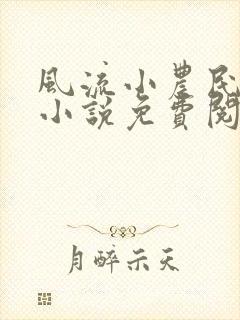 風流小農民
小說免費閱
月醉示天